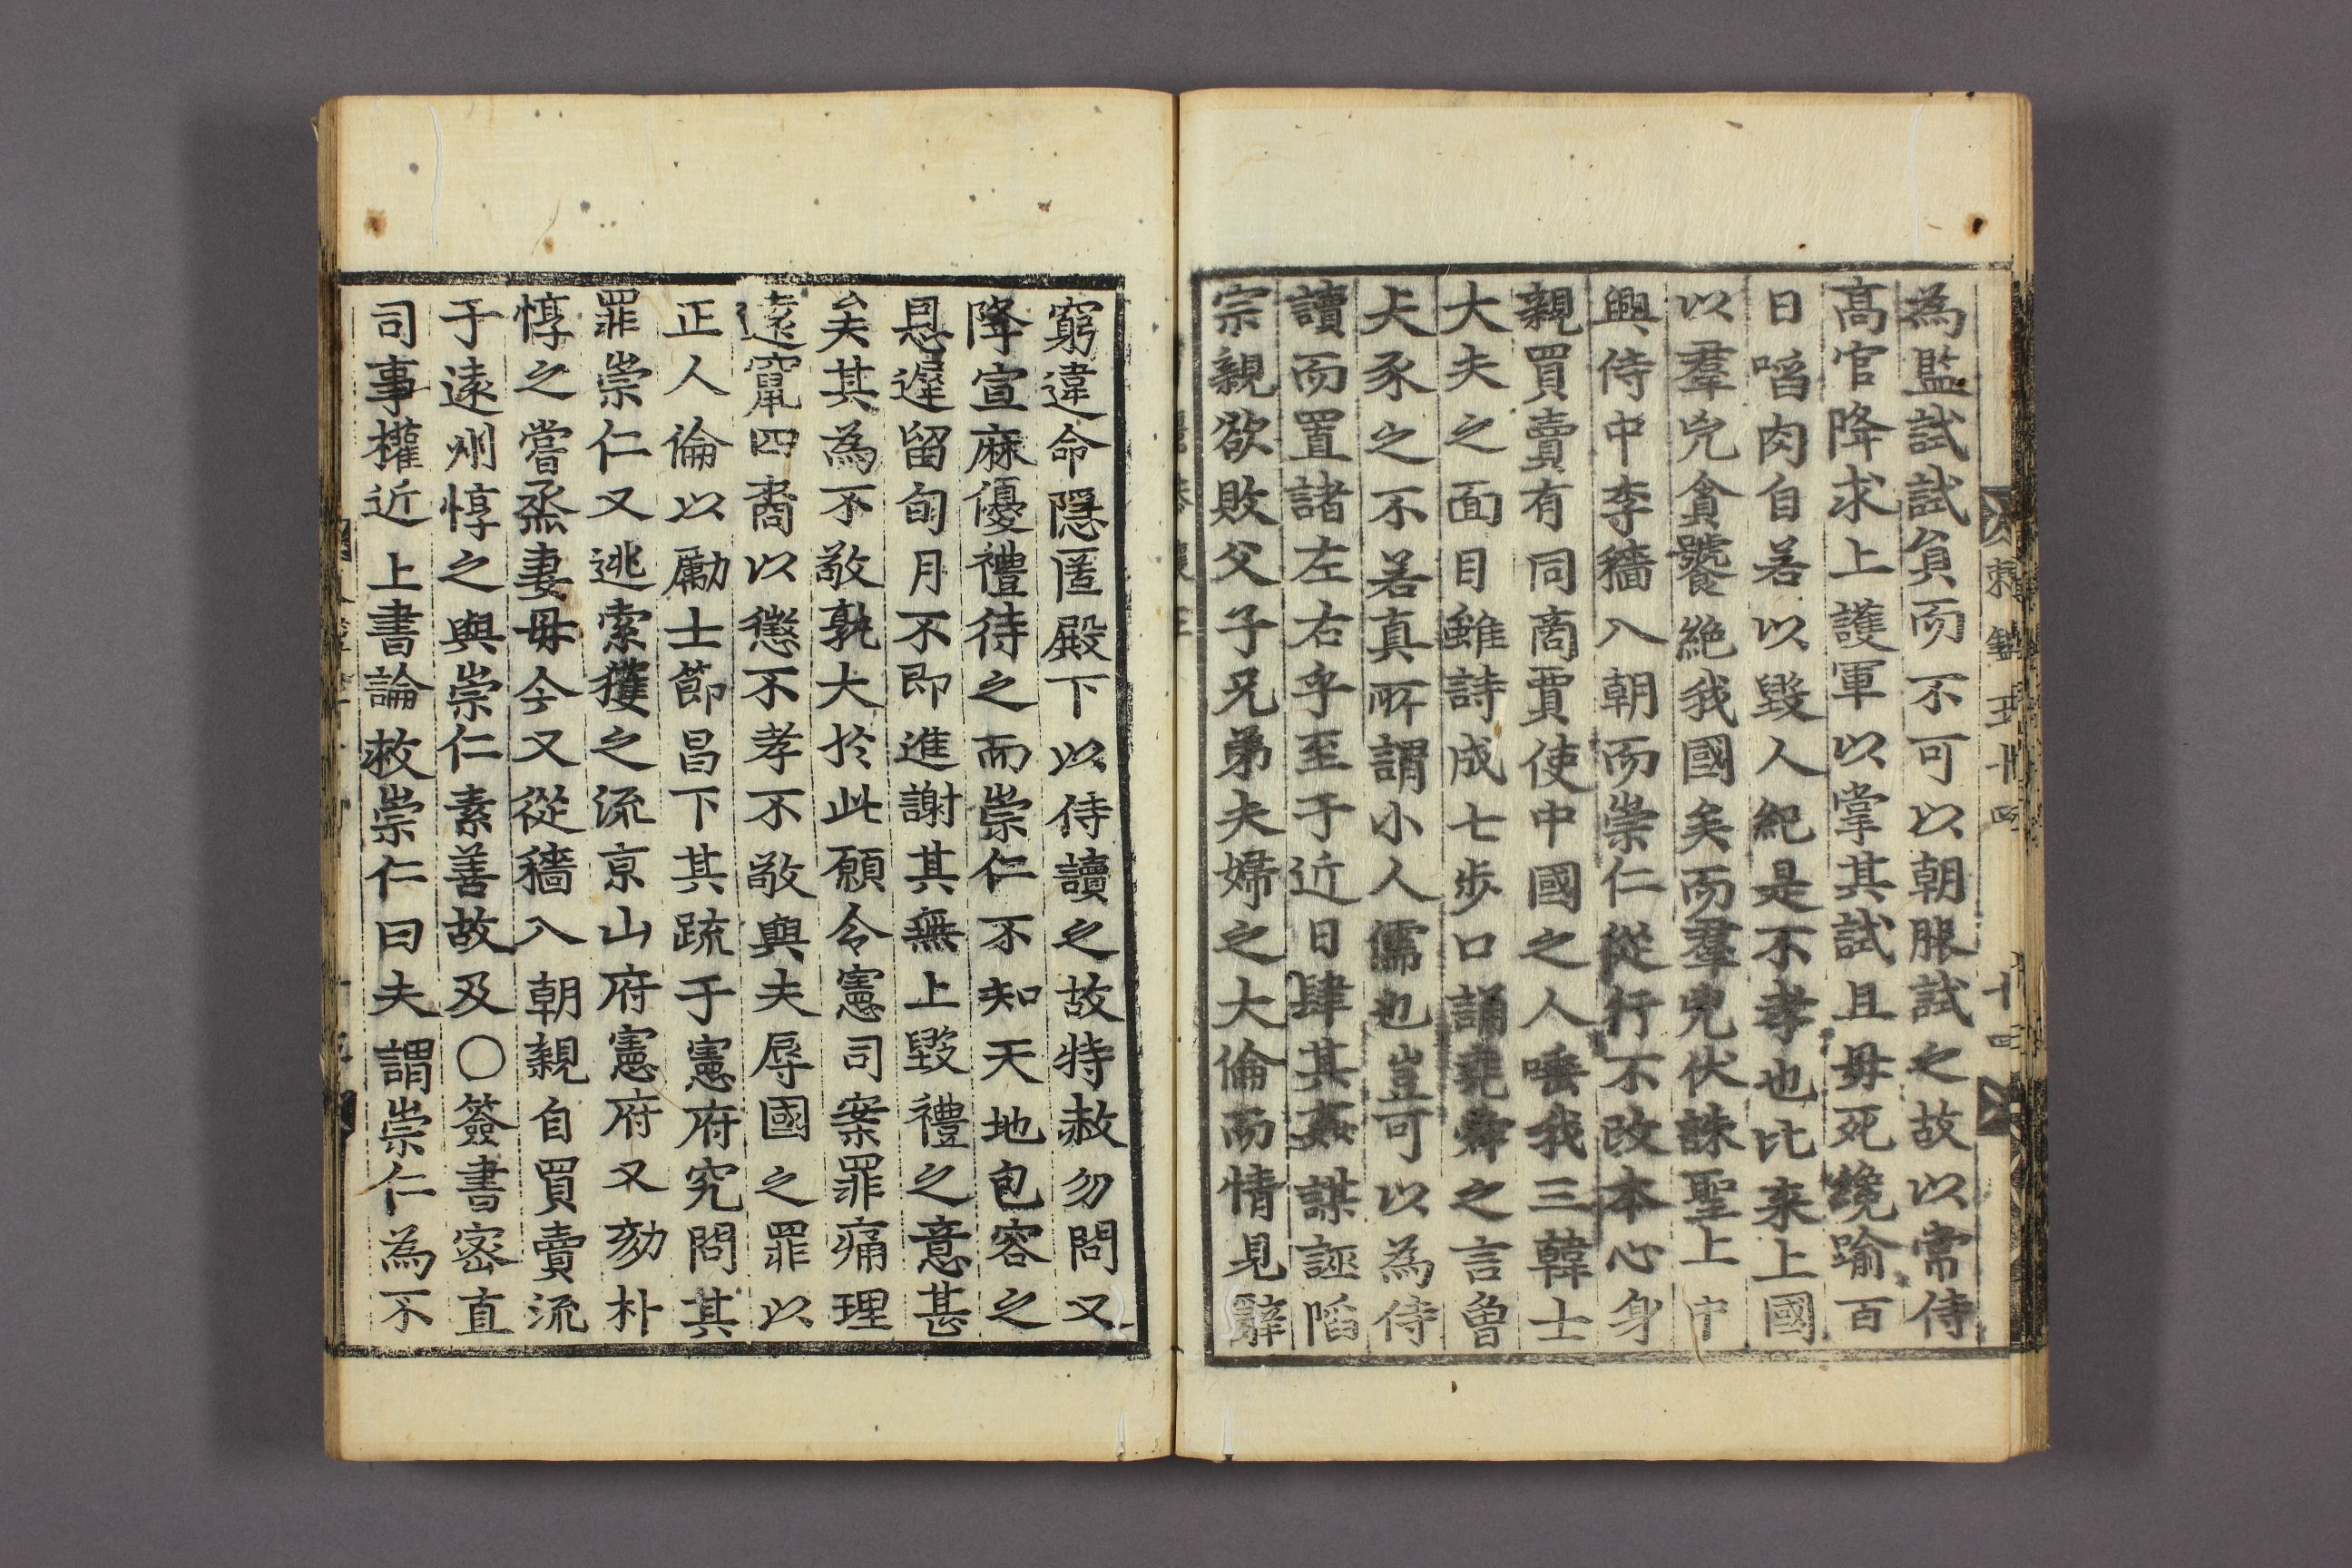 為監試試負而不可以朝服試之故以常侍
高官降求上護軍以掌其試且毋死纔踰百
日啗肉自若以毀人紀是不孝也比来上國
以羣兇貪饕絶我國矣而羣兇伏誅聖上中
興侍中李穡入朝而崇仁從行不改本心身
親買賣有同商賈使中國之人唾我三韓士
大夫之面目雖詩成七步口誦堯舜之言曾
犬豕之不若真所謂小人儒也豈可以為侍
讀而置諸左右乎至于近日肆其姦謀誣陷
宗親欲敗父子兄弟夫婦之大倫而情見辭
東鑑五十四
十四
窮違命隱匿殿下以侍讀之故特赦勿問又
降宣麻優禮待之而崇仁不知天地包容之
恩遲留旬月不即進謝其無上毀禮之意甚
矣夫其為不敬孰大於此願令憲司案罪痛理
遠竄四裔以懲不孝不敬與夫辱國之罪以
正人倫以勵士節昌下其疏于憲府究問其
罪崇仁又逃索獲之流京山府憲府又劾朴
惇之嘗烝妻毋今又從穡入朝親自買賣流
于遠州惇之與崇仁素善故及○簽書密直
司事權近上書論救崇仁曰夫謂崇仁為不